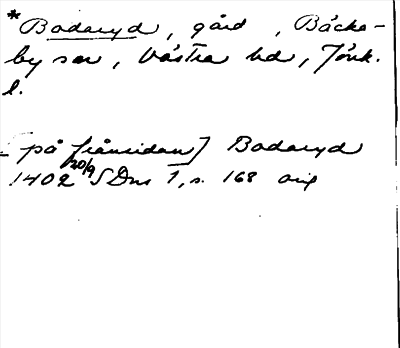 * Bodaryd, gård, Bäcka-
by sn, Västra hd, Jönk.
l.
[på framsidan] Bodaryd
1402 20/9 SDns 1, s. 168 orig